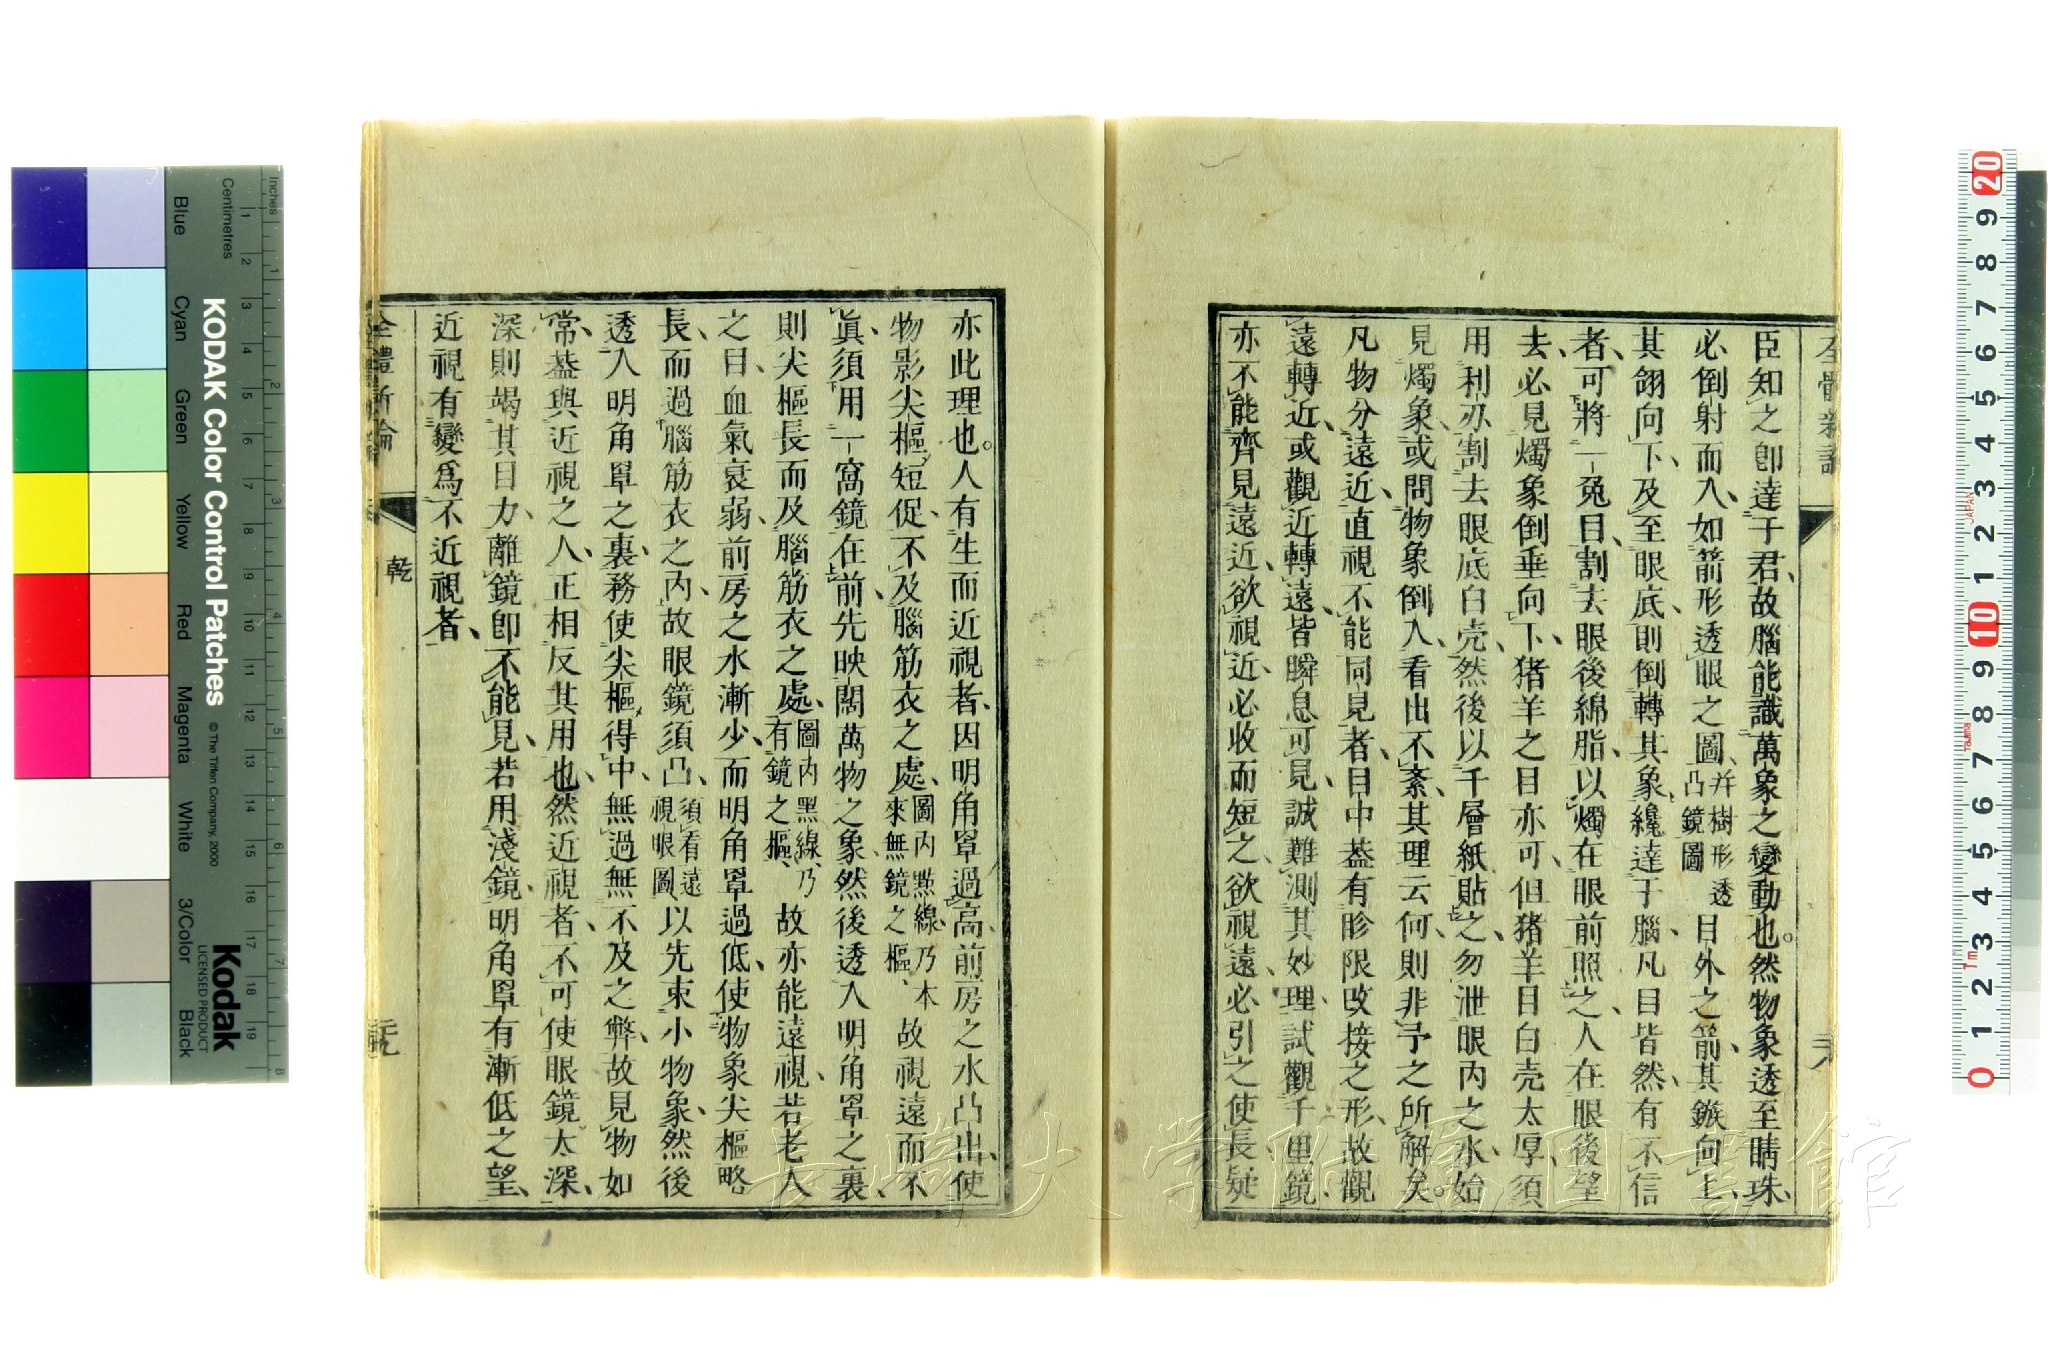 臣知之卽達于君、故腦能識萬象之變動也。然物象透至睛珠、
必倒射而入、如箭形透眼之圖、幷樹形透凸鏡圖目外之箭、其鏃向上、
其翎向下、及至眼底、則倒轉其象、纔達于腦、凡目皆然、有不信
者、可將一兔目、割去眼後綿脂、以燭在眼前照之、人在眼後望
去、必見燭象倒垂向下、猪羊之目亦可、但猪羊目白壳太厚、須
用利刅割去眼底白壳、然後以千層紙貼之、勿泄眼內之水、始
見燭象、或問物象倒入、看出不紊、其理云何、則非予之所解矣。
凡物分遠近、直視不能同見者、目中葢有畛限攺接之形、故觀
遠轉近、或觀近轉遠、皆瞬息可見、誠難測其妙理、試觀千里鏡、
亦不能齊見遠近、欲視近、必收而短之、欲視遠、必引之使長、疑
全體新論
亦此理也。人有生而近視者、因明角罩過高、前房之水凸出、使
物影尖樞短促、不及腦筋衣之處、圖內點線、乃本來無鏡之樞、故視遠而不
眞、須用一窩鏡在前、先映闊萬物之象、然後透入明角罩之裏、
則尖樞長而及腦筋衣之處、圖內黑線、乃有鏡之樞、故亦能遠視、若老人
之目、血氣衰弱、前房之水漸少、而明角罩過低、使物象尖樞略
長、而過腦筋衣之內、故眼鏡須凸、須看遠視眼圖以先束小物象、然後
透入明角罩之裏、務使尖樞得中、無過無不及之弊、故見物如
常、葢與近視之人、正相反其用也、然近視者、不可使眼鏡太深、
深則竭其目力、離鏡卽不能見、若用淺鏡、明角罩有漸低之望、
近視有變爲不近視者、
全體新論
乾
Inches
Centimetres
Blue
Cyan
Green
Yellow
Red
Magenta
White
3/Color
Black
KODAK Color Control Patches
© The Tiffen Company, 2000
Kodak
LICENSED PRODUCT
JAPAN
長崎大学附属図書館